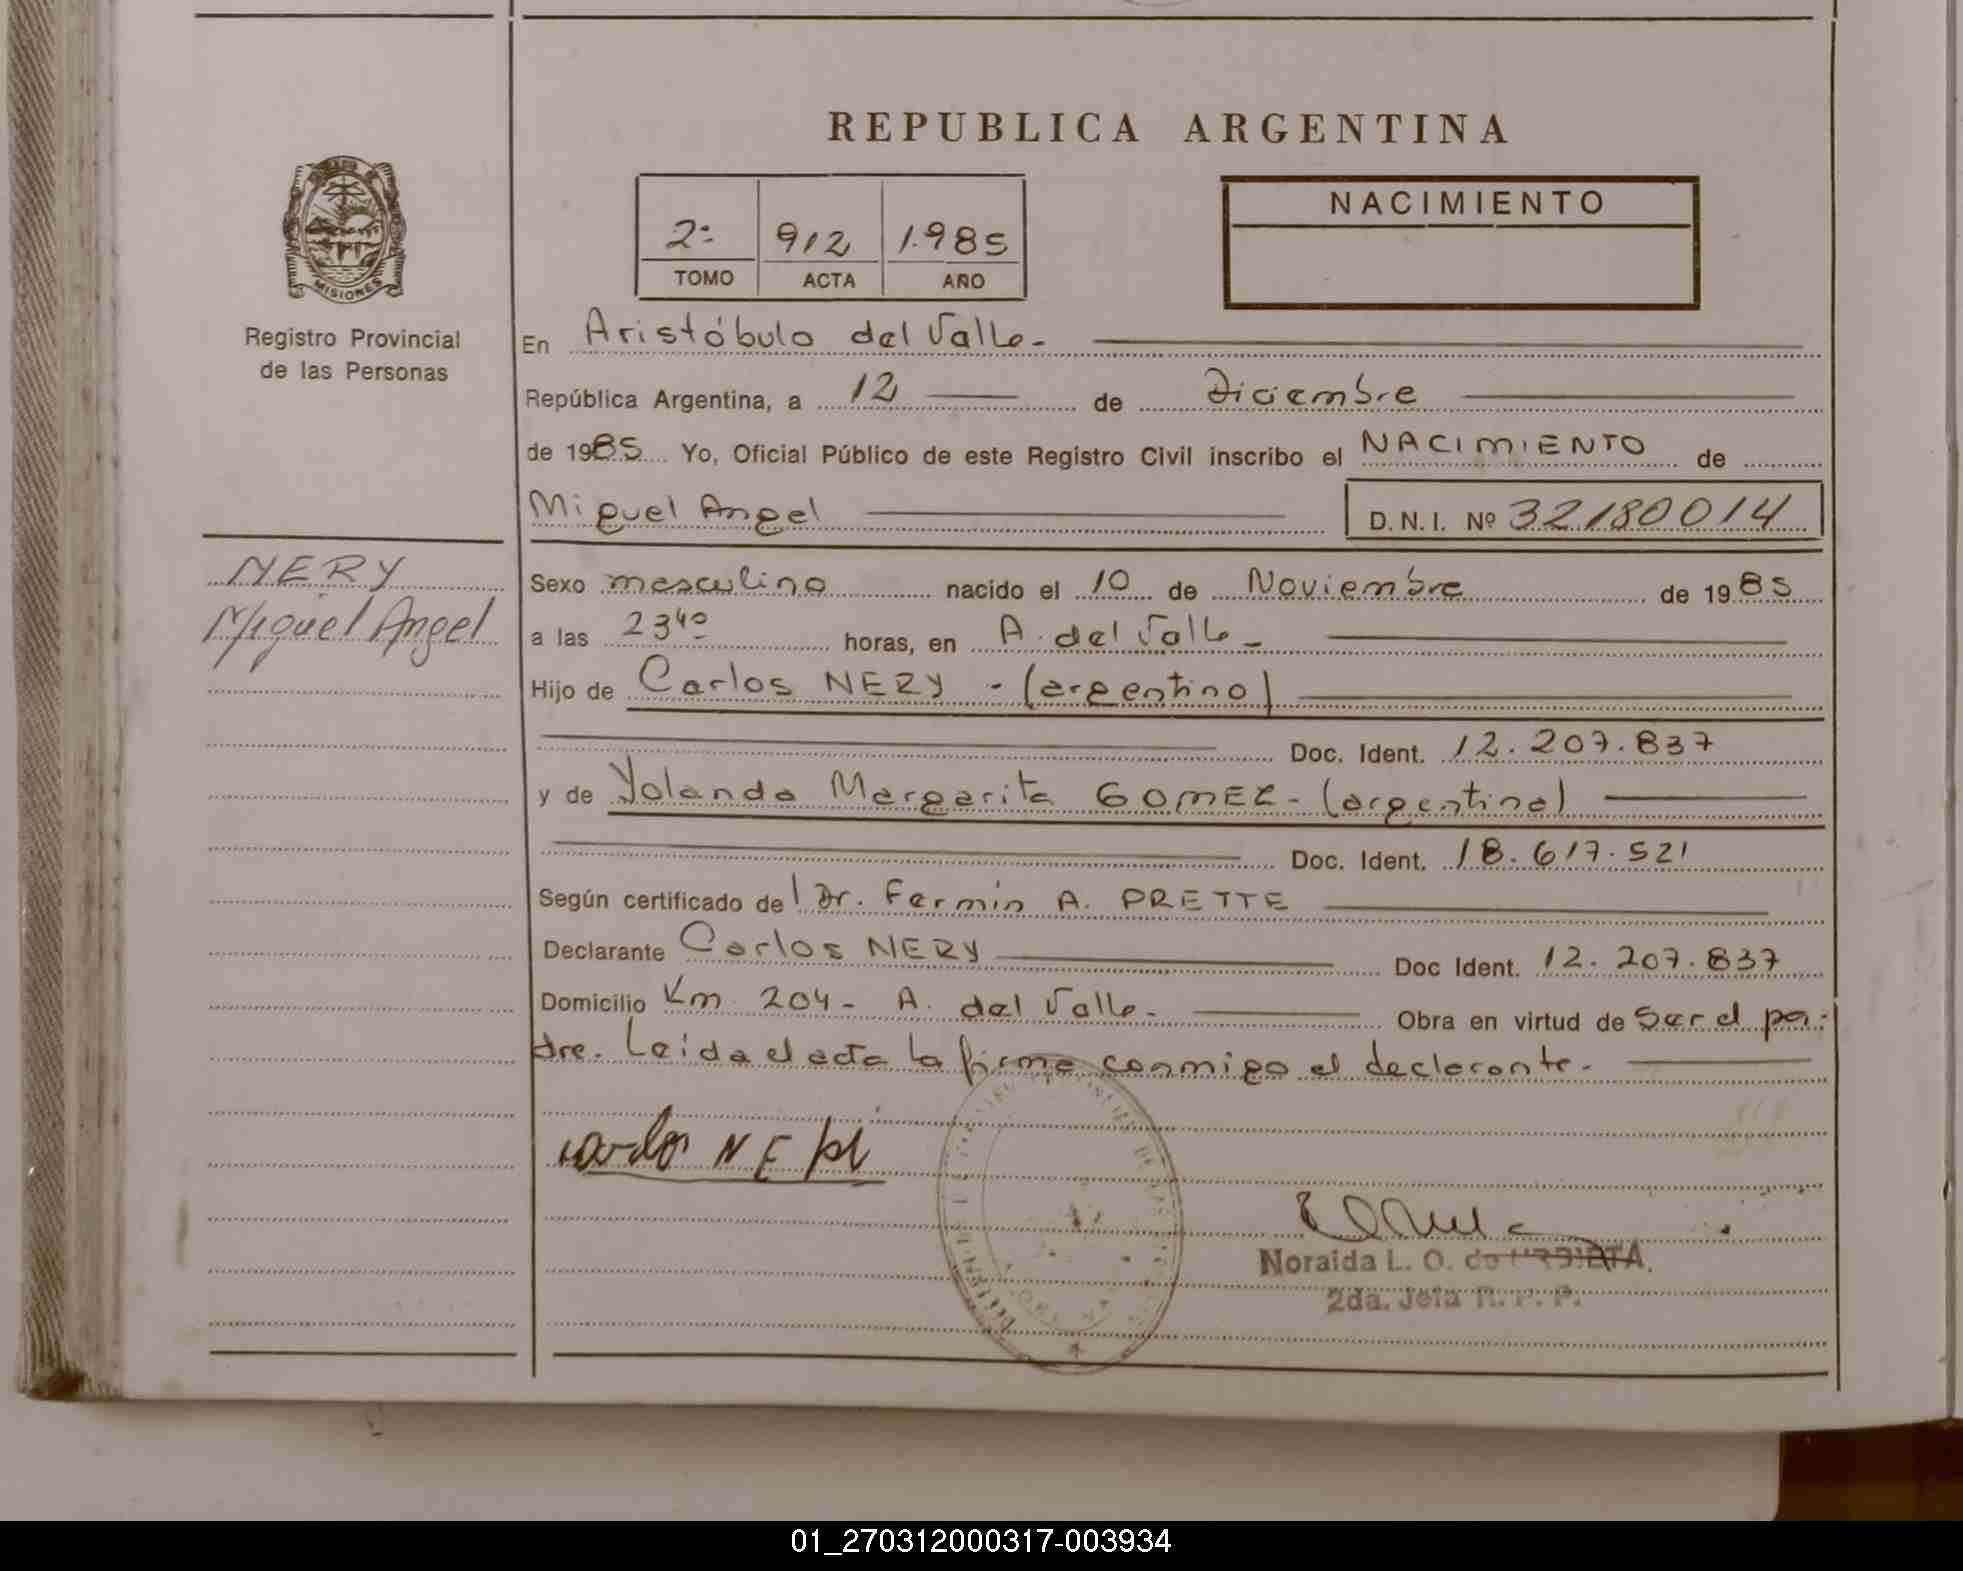 REPUBLICA ARGENTINA
MISIONES
Registro Provincial
de las Personas
2º 912 1.985
TOMO ACTA AÑO
NACIMIENTO
En Aristóbulo del Valle.-
República Argentina, a 12 de Diciembre
de 1985 Yo, Oficial Público de este Registro Civil inscribo el NACIMIENTO de
Miguel Angel D.N.I. Nº 32180014
NERY
Miguel Angel
Sexo masculino nacido el 10 de Noviembre de 1985
a las 23⁴⁰ horas, en A. del Valle -
Hijo de Carlos NERY - (argentino)
Doc. Ident. 12.207.837
y de Yolanda Margarita GOMEZ - (argentina)
Doc. Ident. 18.617.521
Según certificado del Dr. Fermin A. PRETTE
Declarante Carlos NERY Doc Ident. 12.207.837
Domicilio Km 204 - A. del Valle.- Obra en virtud de Ser el pa-
dre. Leida el acta la firma conmigo el declarante.-
Carlos NERY
Noraida L. O. de URRIETA.
2da. Jefa R. P. P.
01_270312000317-003934